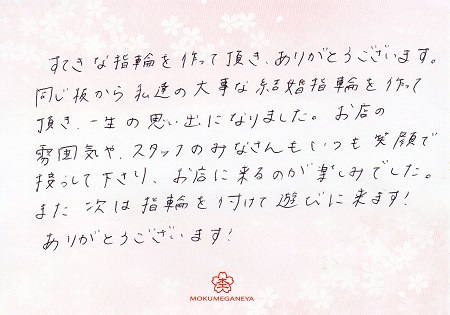 すてきな指輪を作って頂き、ありがとうございます。
同じ板から私達の大事な結婚指輪を作って
頂き、一生の思い出になりました。お店の
雰囲気や、スタッフのみなさんもいつも笑顔で
接っして下さり、お店に来るのが楽しみでした。
また次は指輪を付けて遊びに来ます!
ありがとうございます!
木
MOKUMEGANEYA